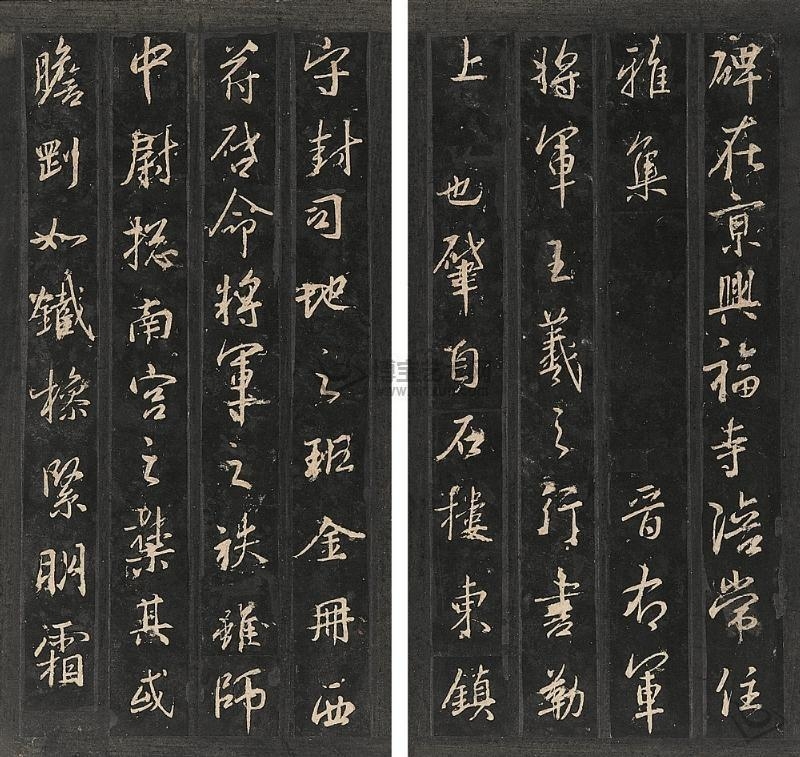 碑在京興福寺陪常住
雅集 晉右軍
將軍王羲之行書勒
上 也肇自石樓東鎮
守封司地之班金冊西
符啓命將軍之袟雖師
中尉摠南宮之禁其或
膽剛如鐵操緊明霜